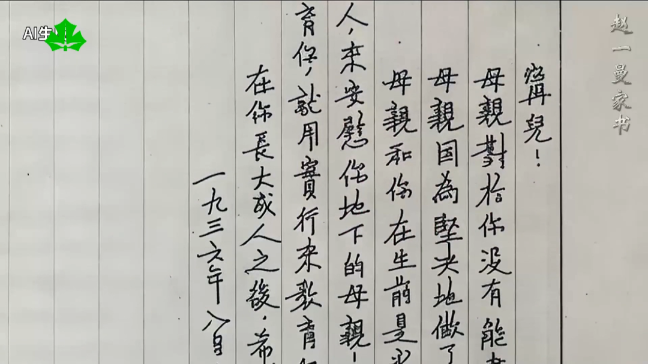 AI生
赵一曼家书
寗兒！
母親對於你没有能
母親因為堅決地做了
母親和你在生前是
人，来安慰你地下的母親！
育你，就用實行来教育
在你長大成人之後。希
一九三六年八月